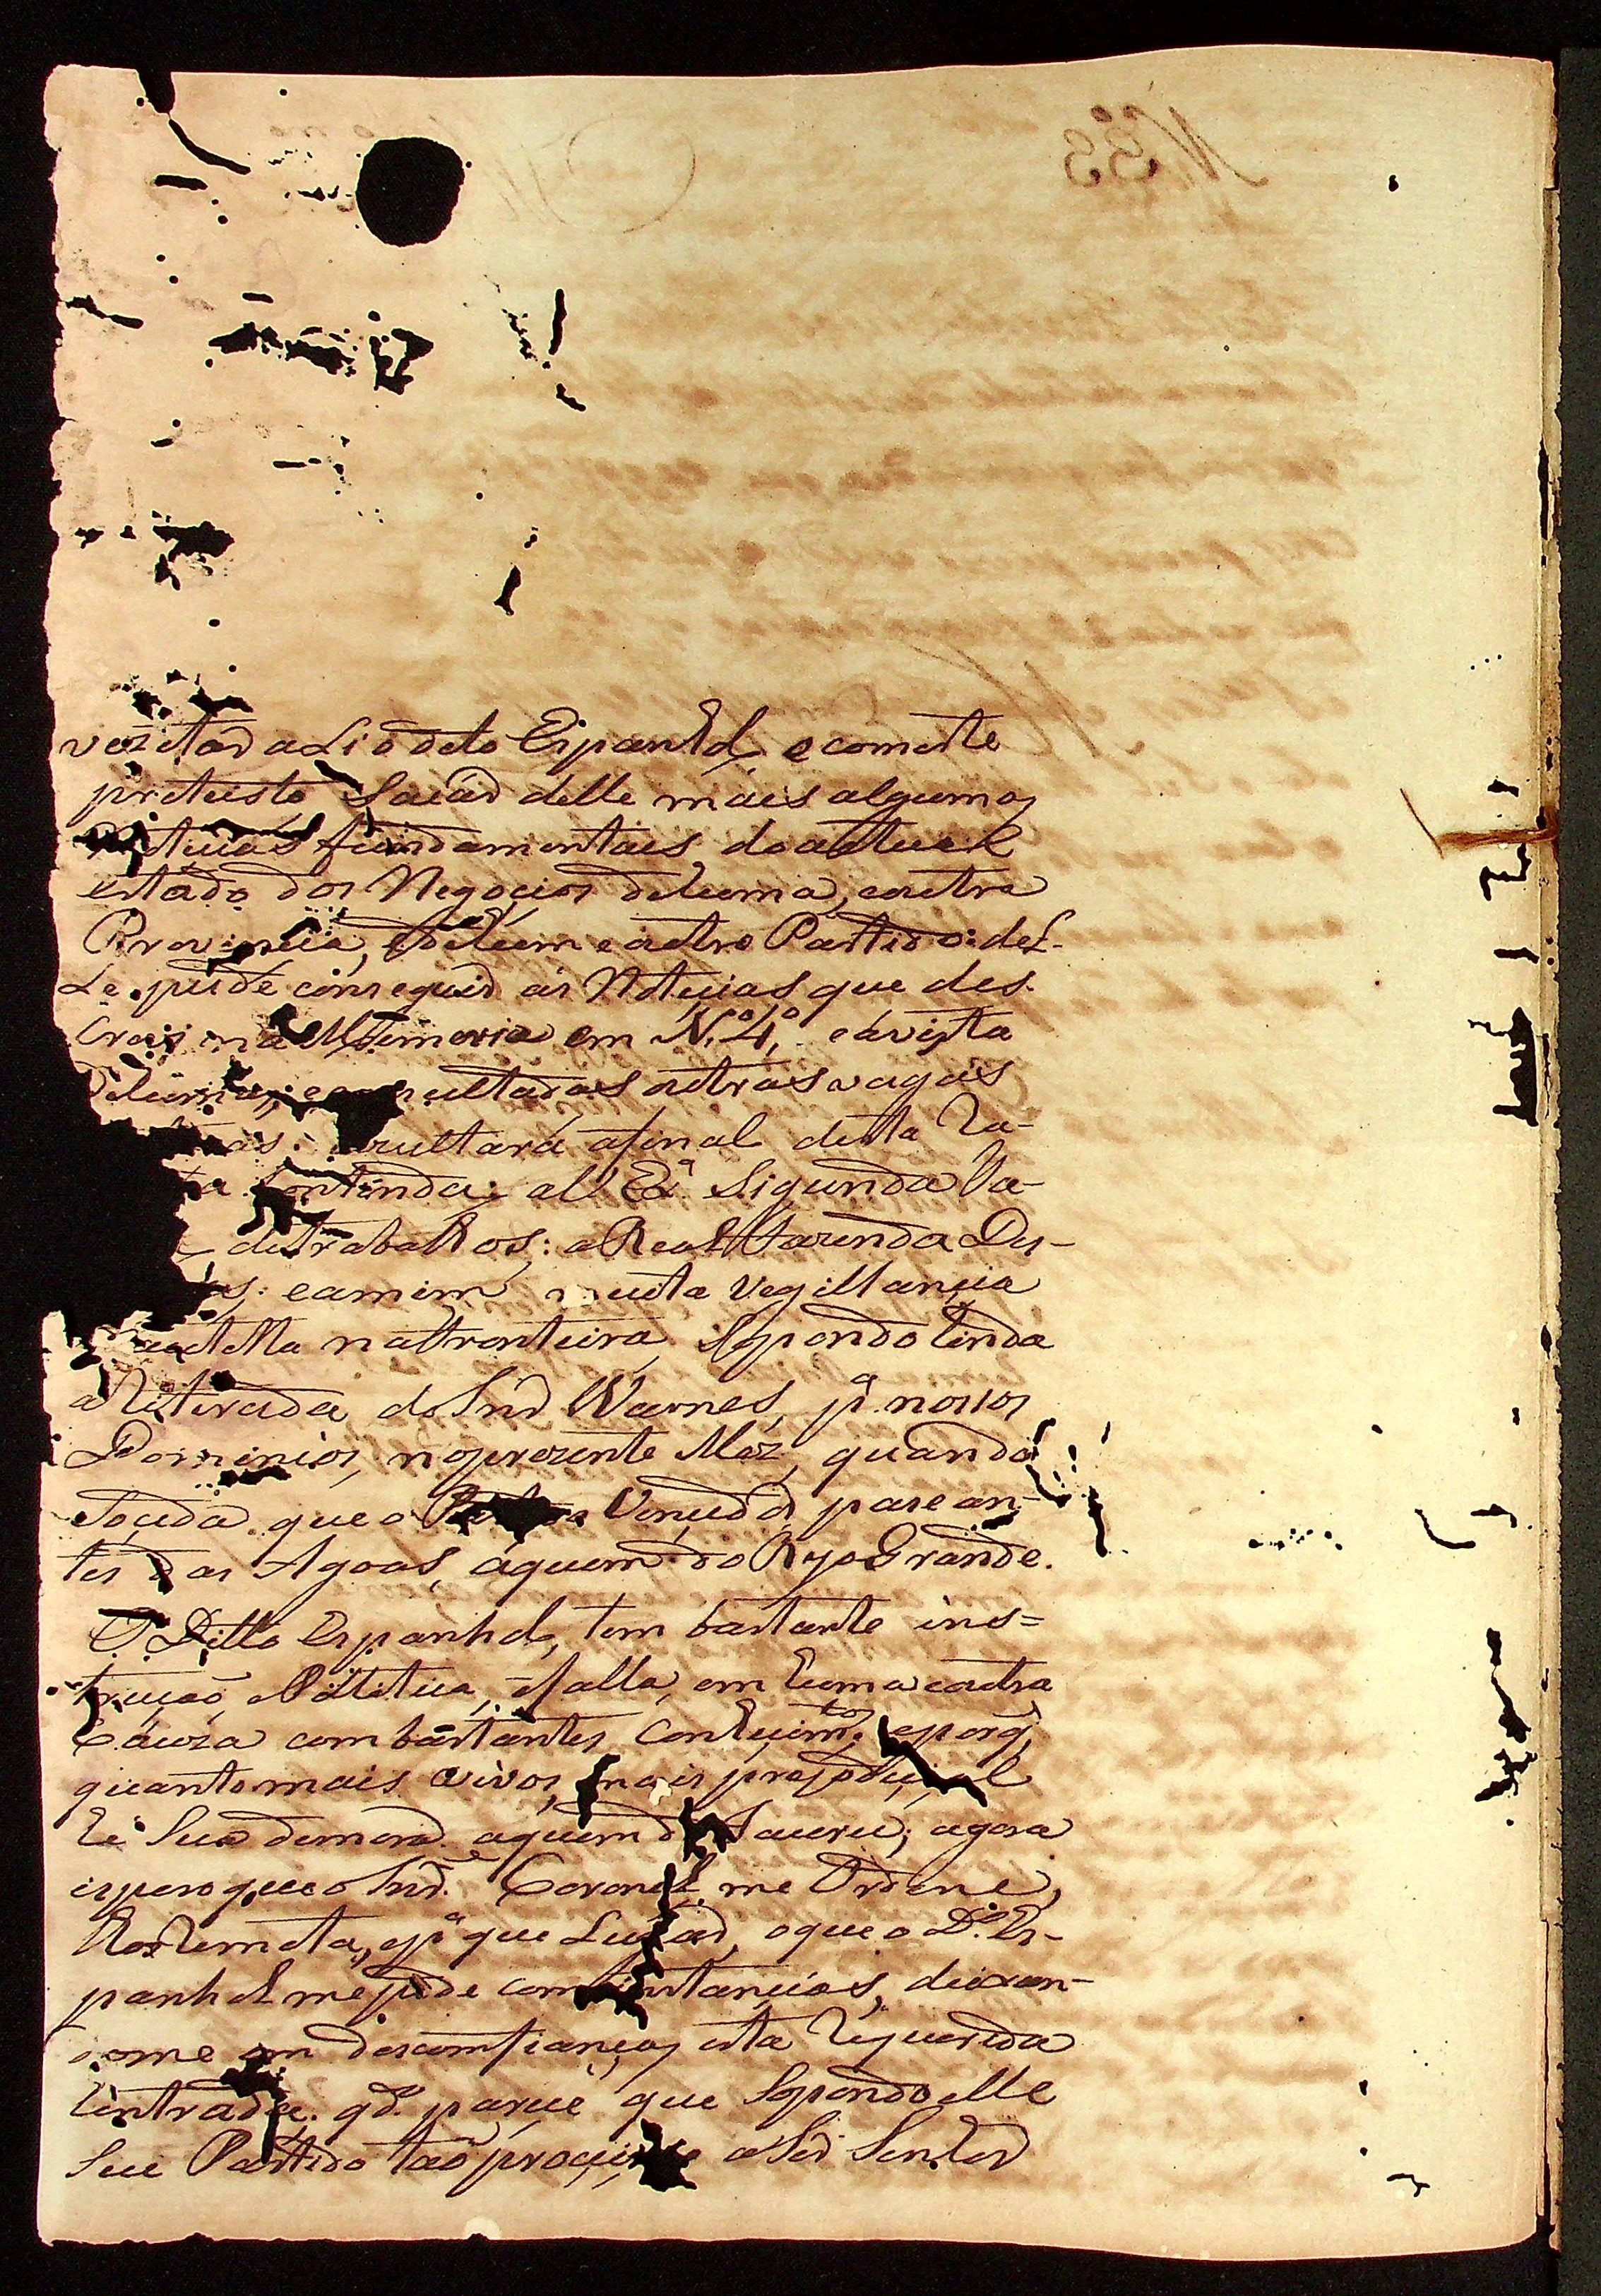 vezitar a Sió dito Espanhol, e com este
pretexto Sacár delle mais algumas
Noticias fundamentaes do actual
estado dos Negocios de huma, e outra
Provincia, e de hum e outro Partido: del-
le pude conseguir as Noticias que des-
crevi na Memoria em N.º 4.º, e á vista
de huma, e consultadas outras vagas
resultará afinal desta
contenda: a V. Exª Segunda Va-
de trabalhos: a Real Fazenda Des-
: e a mim muita Vegillancia
e cautella na Fronteira, Supondo tenda
a Retirada do Snr̃ Warnes, pª nossos
Dominios, no prezente Mez, quando
Souda que o Vencedor pase an-
tes das Agoas, áquem do Ryo Grande.
O Ditto Espanhol, tem bastante ins=
trução Politica, e falla, em huma e outra
Cauza com bastantes Conhecimtos, e porq̃
quanto mais vivos, mais prejodicial
hé Sua demora aquem do Jaurú; agora
espero que o Snr̃. Coronel me Ordene,
Ro remeta, e pª que Lugar, o que o Dº Es-
panhol me pede com instancias, deixan-
dome em descomfianças esta requerida
hentrada. qdº. parece que Supondo elle
Seu Partido tão procimo a Ser Senhor